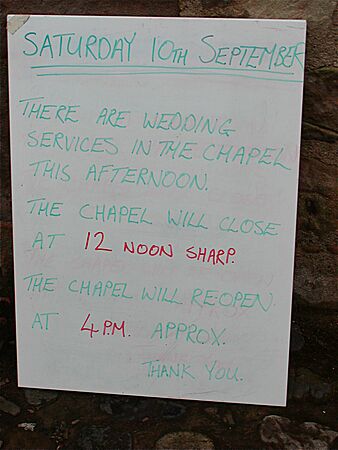 SATURDAY 10TH SEPTEMBER
THERE ARE WEDDING
SERVICES IN THE CHAPEL
THIS AFTERNOON.
THE CHAPEL WILL CLOSE
AT 12 NOON SHARP.
THE CHAPEL WILL REOPEN
AT 4 P.M. APPROX.
THANK YOU.